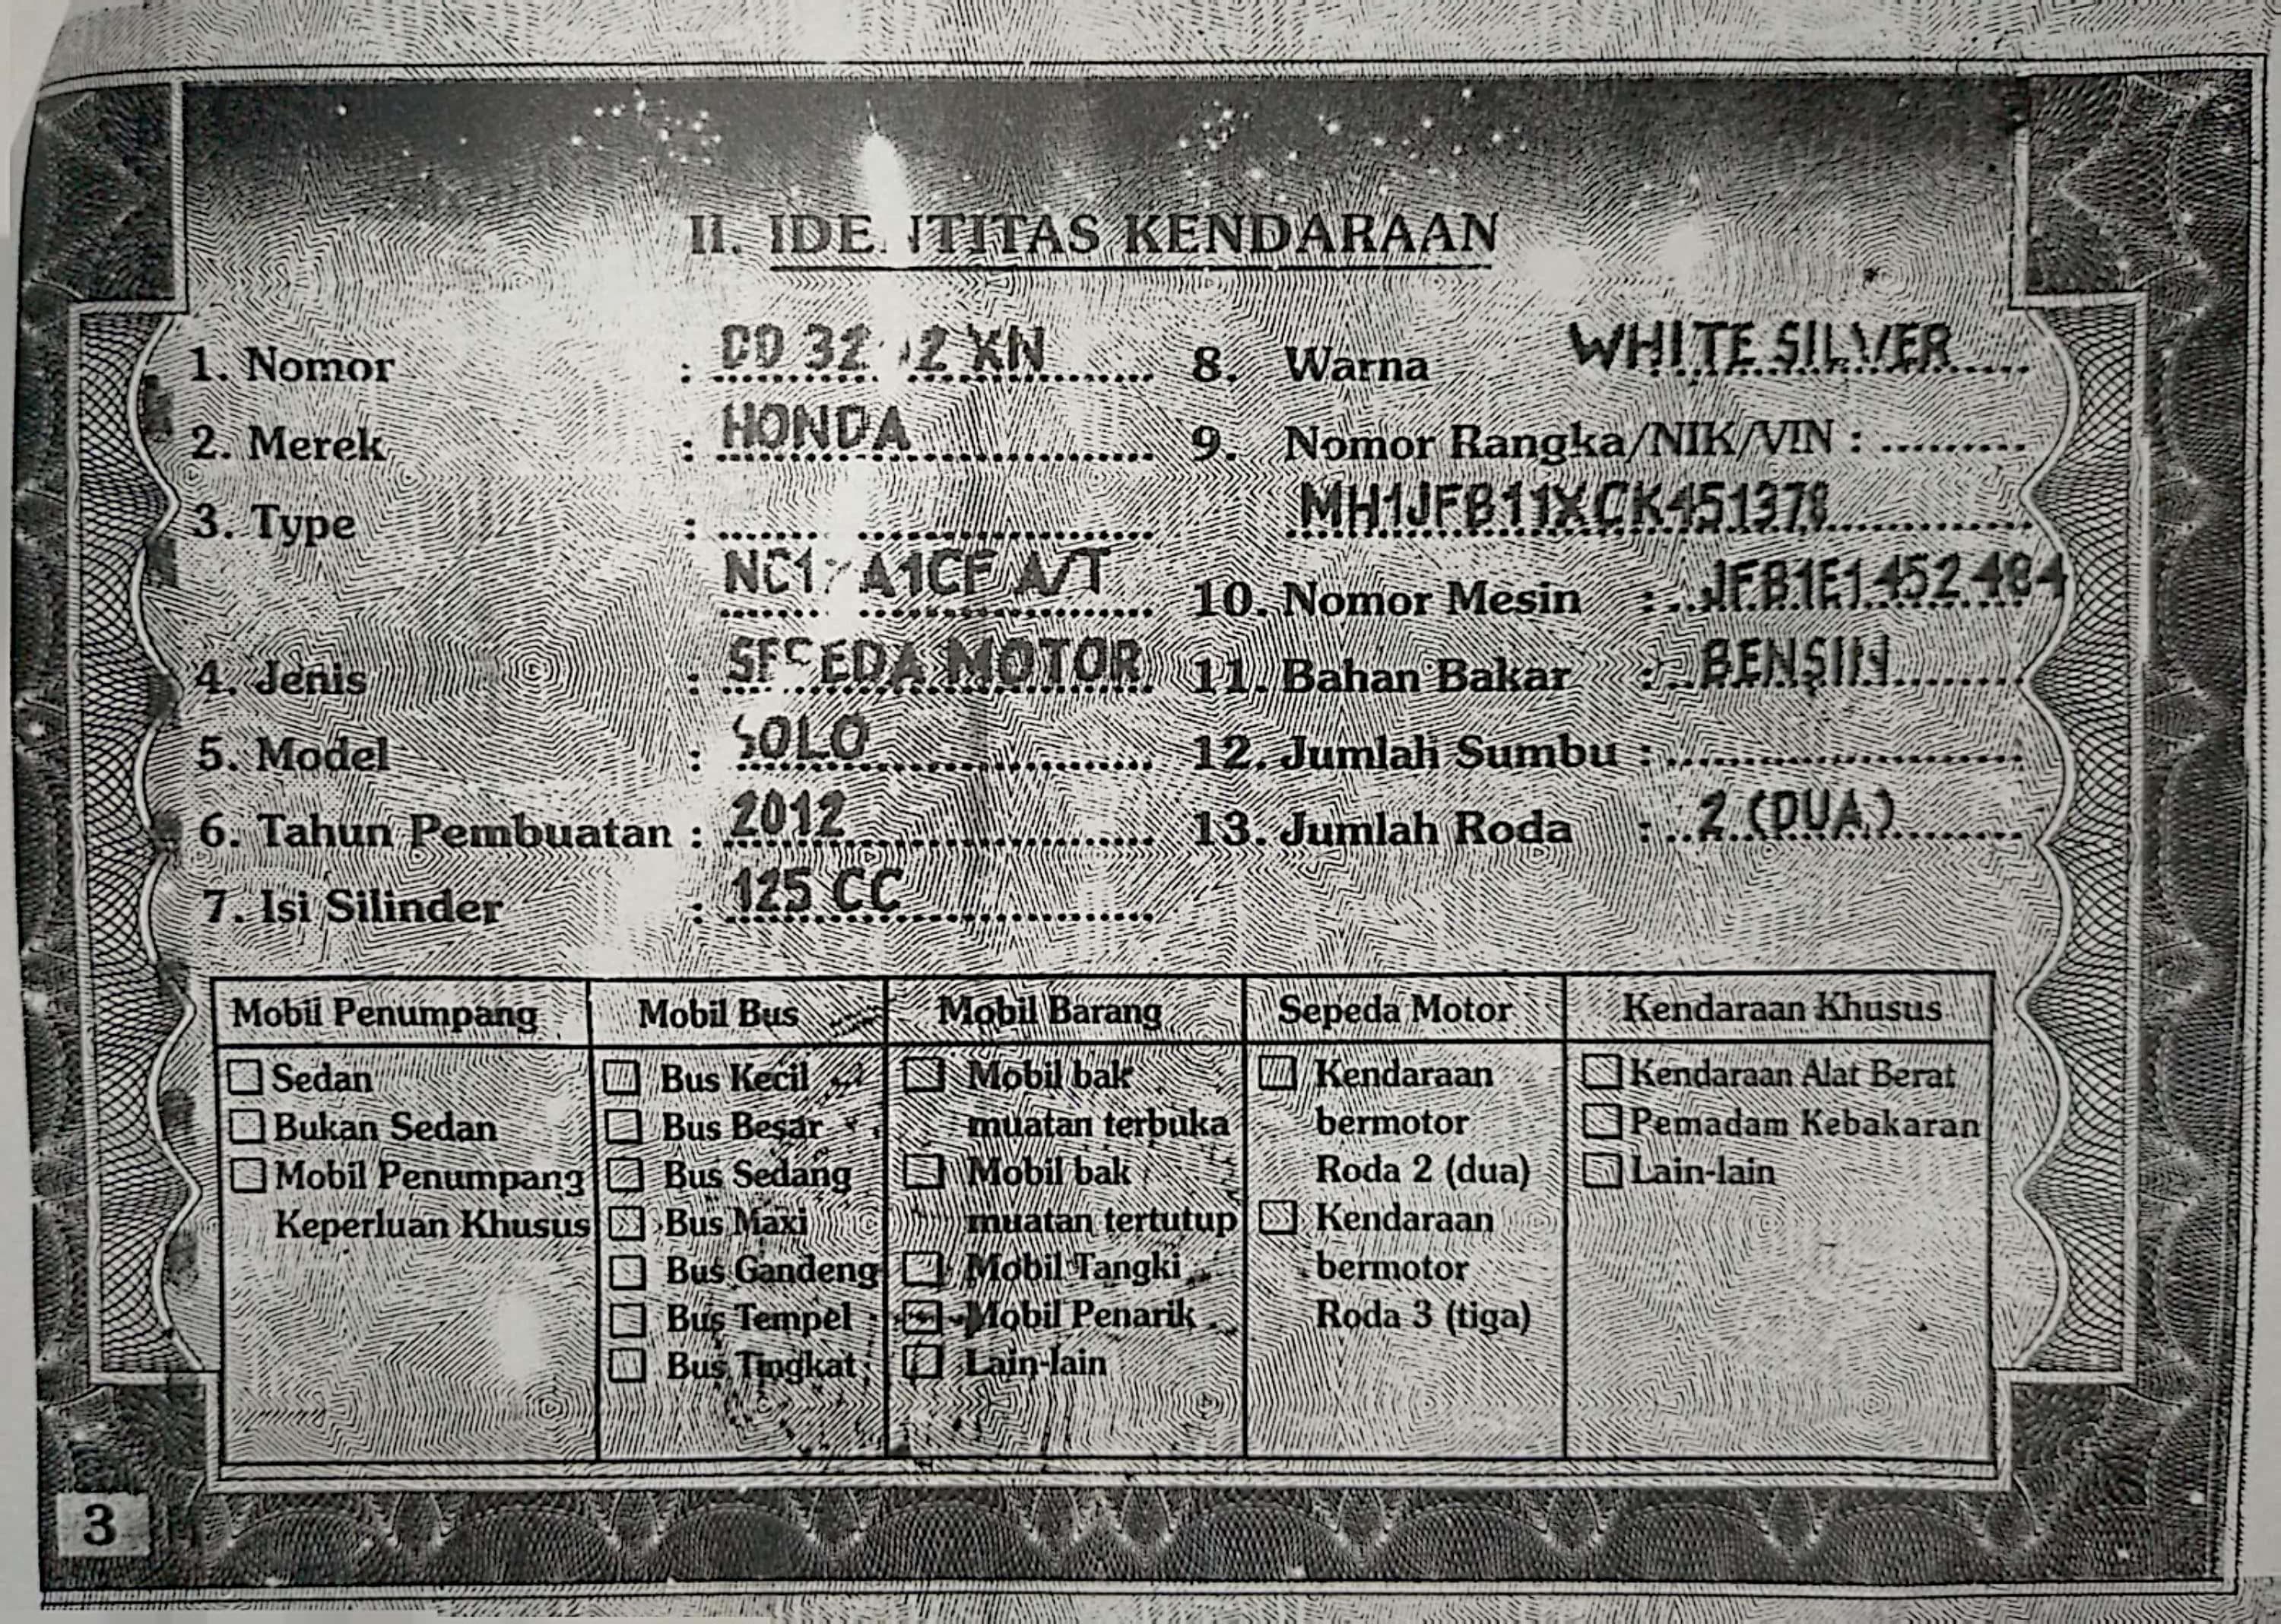 II. IDENTITAS KENDARAAN
1. Nomor : DD XN
2. Merek : HONDA
3. Type :
A1CF A/T
4. Jenis : SEPEDA MOTOR
5. Model : SOLO
6. Tahun Pembuatan : 2012
7. Isi Silinder : 125 CC
8. Warna WHITE SILVER
9. Nomor Rangka/NIK/VIN :
MH1JFB11XCK451378
10. Nomor Mesin : JFB1E1452484
11. Bahan Bakar : BENSIN
12. Jumlah Sumbu :
13. Jumlah Roda : 2 (DUA)
Mobil Penumpang
Sedan
Bukan Sedan
Mobil Penumpang
Keperluan Khusus
Mobil Bus
Bus Kecil
Bus Besar
Bus Sedang
Bus Maxi
Bus Gandeng
Bus Tempel
Bus Tingkat
Mobil Barang
Mobil bak
muatan terbuka
Mobil bak
muatan tertutup
Mobil Tangki
Mobil Penarik
Lain-lain
Sepeda Motor
Kendaraan
bermotor
Roda 2 (dua)
Kendaraan
bermotor
Roda 3 (tiga)
Kendaraan Khusus
Kendaraan Alat Berat
Pemadam Kebakaran
Lain-lain
3